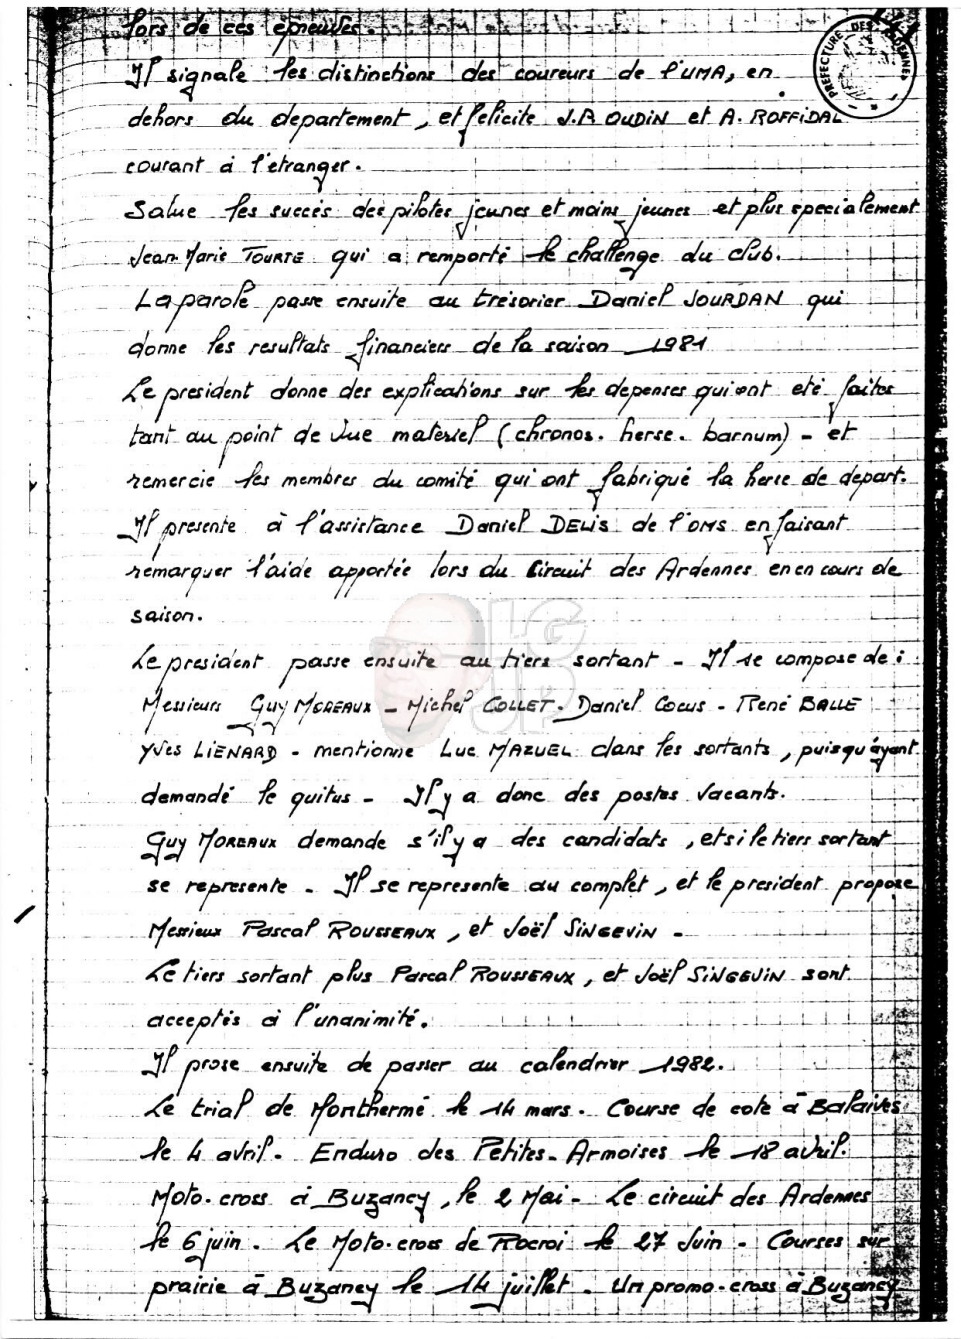 lors de ces epreuves.
PREFECTURE DES ARDENNES
Il signale les distinctions des coureurs de l'UMA, en
dehors du departement, et felicite J.P. OUDIN et A. ROFFIDAL
courant à l'etranger.
Salue les succés des pilotes jeunes et moins jeunes et plus specialement
Jean-Marie TOURTE qui a remporté le challenge du club.
La parole passe ensuite au trésorier Daniel JOURDAN qui
donne les resultats financiers de la saison 1981
Le president donne des explications sur les depenses qui ont eté faites
tant au point de vue materiel (chronos. herse. barnum) - et
remercie les membres du comité qui ont fabriqué la herse de depart.
Il presente à l'assistance Daniel DELIS de l'OMS en faisant
remarquer l'aide apportée lors du Circuit des Ardennes en en cours de
saison.
LG JP
Le president passe ensuite au tiers sortant - Il se compose de :
Messieurs Guy MOREAUX - Michel COLLET. Daniel COCUS - René BALLE
YVES LIENARD - mentionne Luc MAZUEL dans les sortants, puisqu'ayant
demandé le quitus - Il y a donc des postes vacants.
Guy MOREAUX demande s'il y a des candidats, et si le tiers sortant
se represente - Il se represente au complet, et le president propose
Messieux Pascal ROUSSEAUX, et Joël SINGEVIN -
Le tiers sortant plus Pascal ROUSSEAUX, et Joël SINGEVIN sont
acceptés à l'unanimité.
Il prose ensuite de passer au calendrier 1982.
Le trial de Monthermé le 14 mars. Course de cote à Balaives
le 4 avril. Enduro des Petites-Armoises le 18 avril.
Moto-cross à Buzancy, le 2 Mai - Le circuit des Ardennes
le 6 juin. Le Moto-cross de Rocroi le 27 Juin - Courses sur
prairie à Buzancy le 14 juillet. Un promo-cross à Buzancy